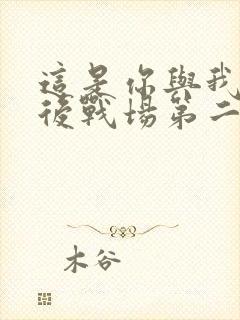 這是你與我
後戰場第二
木谷